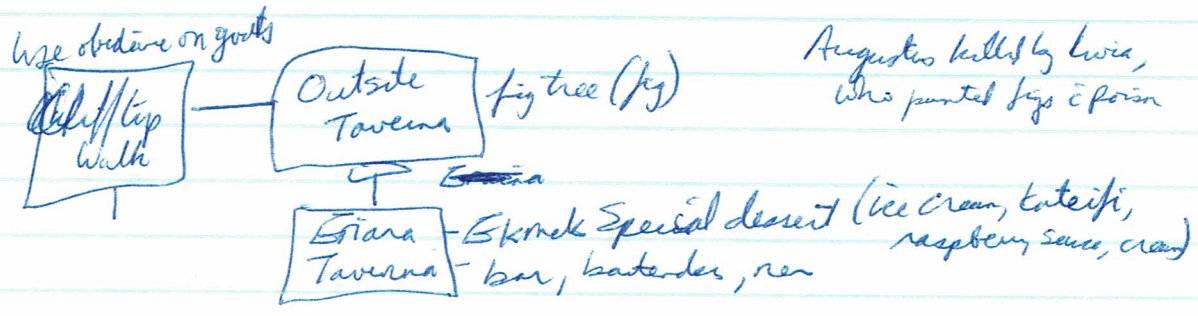 Use obedience on goats
Clifftop
Walk
Outside
Taverna
fig tree (fig)
Augustus killed by Livia,
who painted figs c̄ poison
Eriana
Taverna
Ekmek Special dessert (ice cream, kateifi,
raspberry sauce, cream)
bar, bartender, men